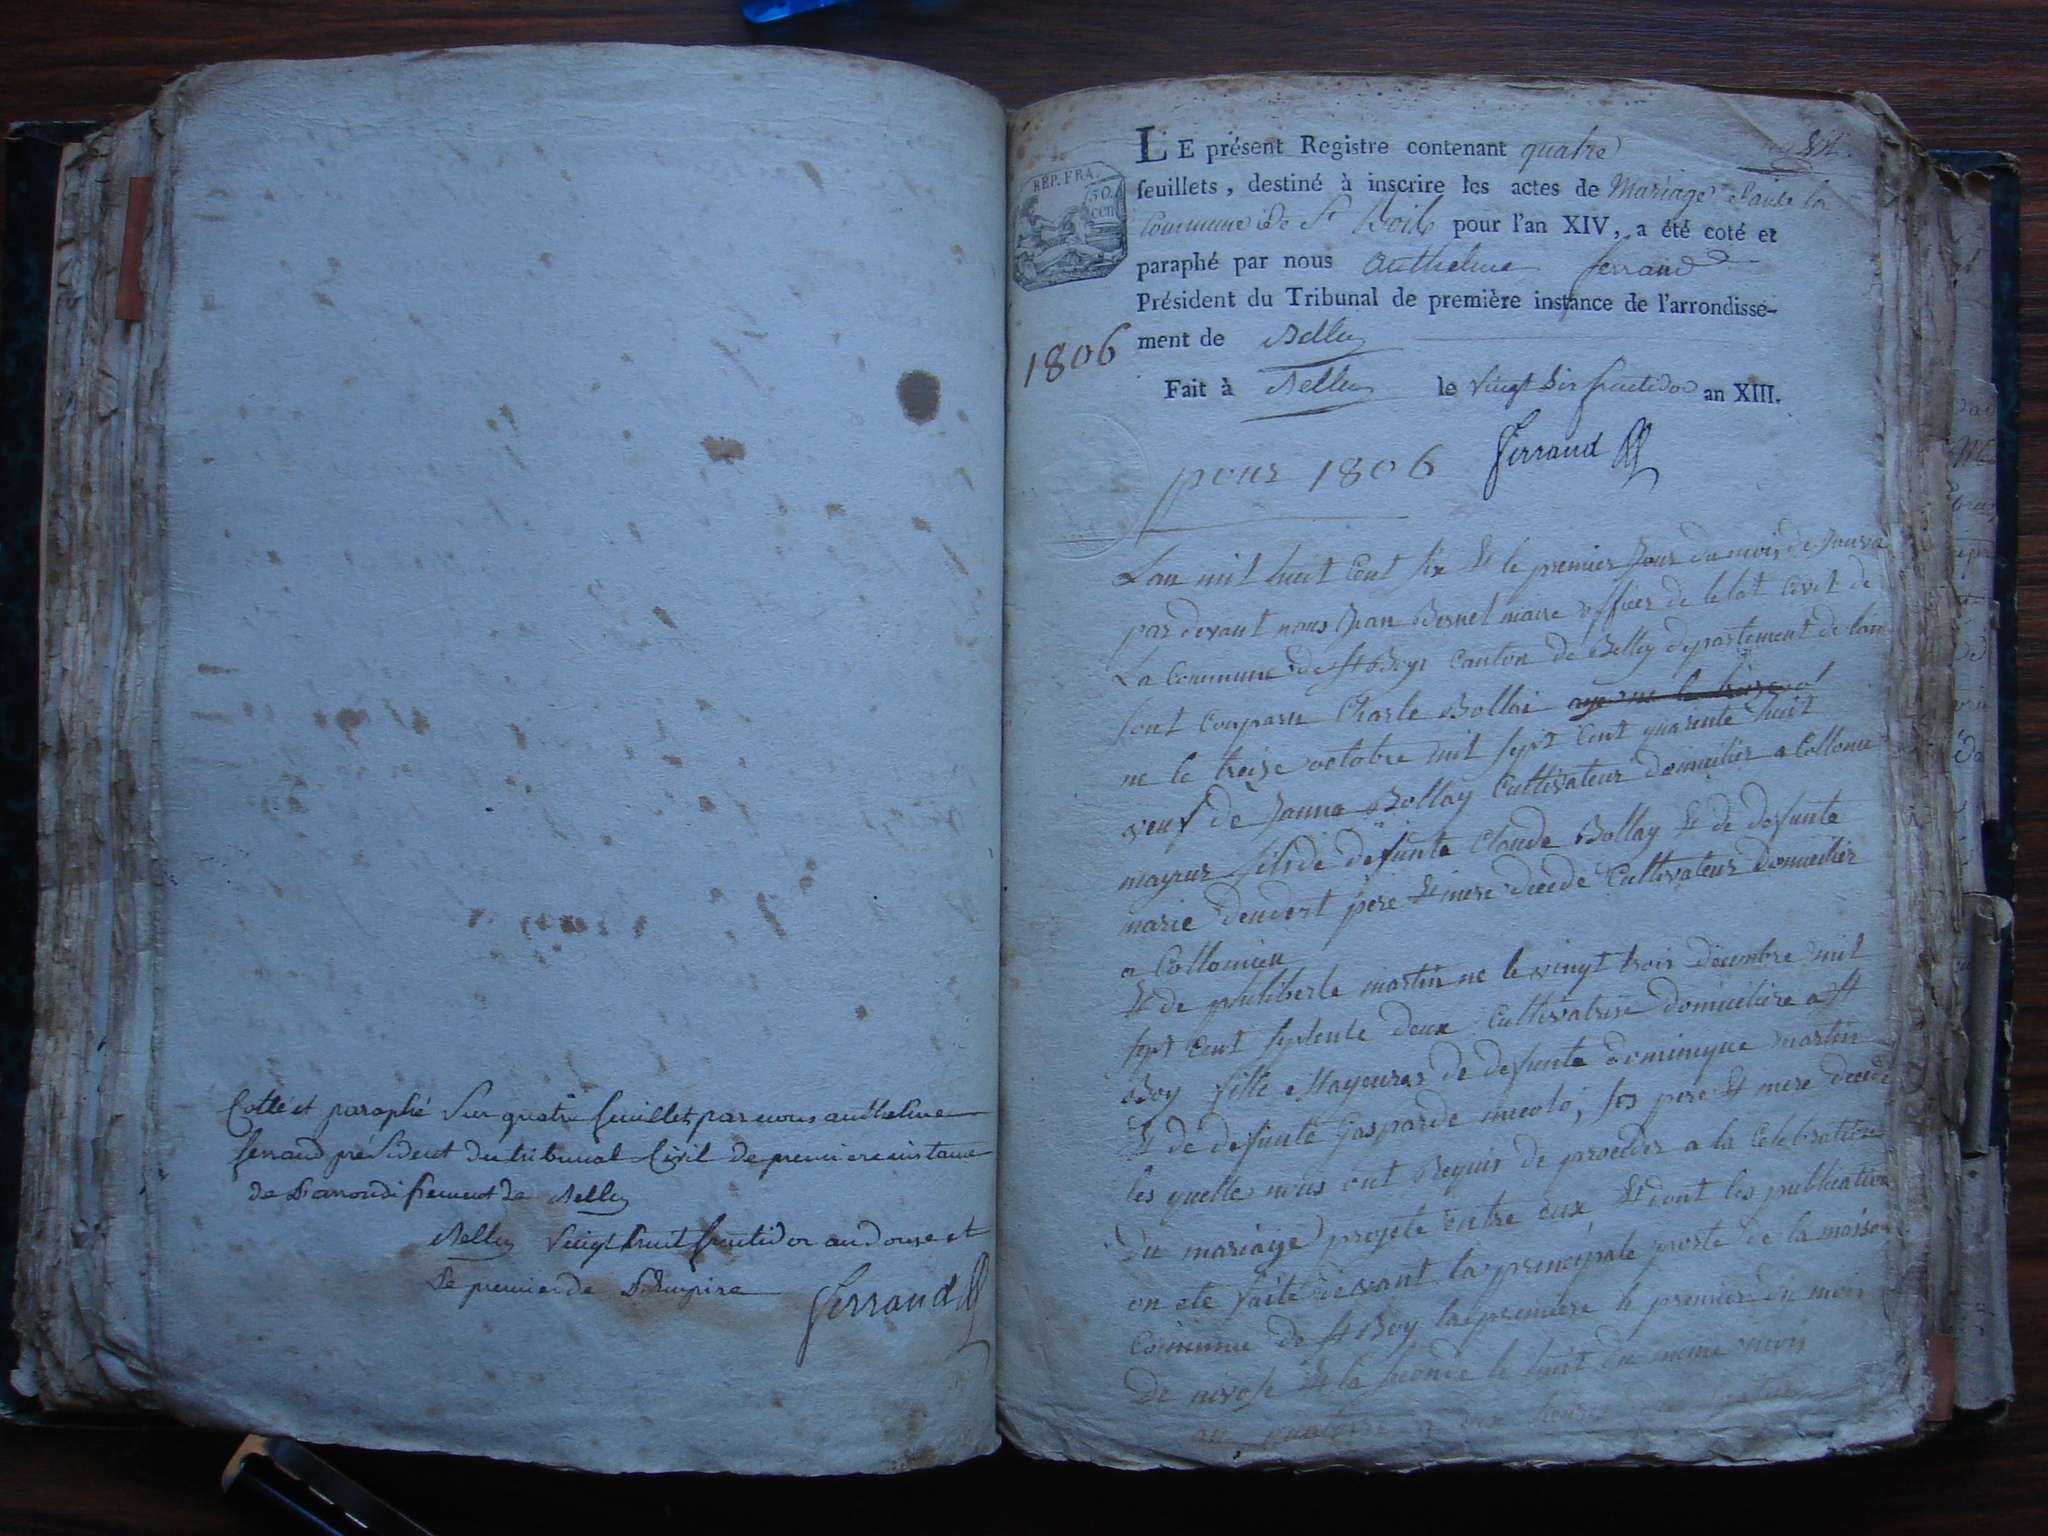 Cotté et paraphé Sur quatre feuillets par nous anthelme
ferrand président du tribunal Civil de premiere instance
de L'arrondissement de Belley
Belley vingt huit fructidor an douze et
Le premier de L'Empire
Ferrand
REP. FRA.
50 cen
LE présent Registre contenant quatre
feuillets, destiné à inscrire les actes de Mariage dans la
Commune de St Boib pour l'an XIV, a été coté et
paraphé par nous Anthelme ferrand
Président du Tribunal de première instance de l'arrondisse-
ment de Belley
1806
Fait à Belley le vingt Six fructidor an XIII.
Ferrand
pour 1806
Lan mil huit Cent six Et le premier Jour du mois de Janva
par devant nous Jean Bernel maire officier de letat Civil de
La Commune de St Boys Canton de Belley departement de lain
sont comparu Charle Bollai
ne le treize octobre mil sept Cent quarente huit
veuf de Janne Bollay Cultivateur domicilier a Collomi
mayeur fils de defunte Claude Bollay Et de defunte
marie dendert pere Et mere decede Cultivateur domicilier
a Collomieu
Et de philiberte martin ne le vingt trois decembre mil
sept Cent septente deux Cultivatrise domiciliere a St
Boy fille Mayeures de defunte dominique martin
Et de defunte Gasparde nicolo, ses pere Et mere decede
les quelles nous ont Requis de proceder a la Celebration
Du mariage projete entre eux Et dont les publication
on ete faite devant la principale porte de la maison
Commune de St Boy la premiere le premier du mois
De nivose Et la seconde le huit du meme mois